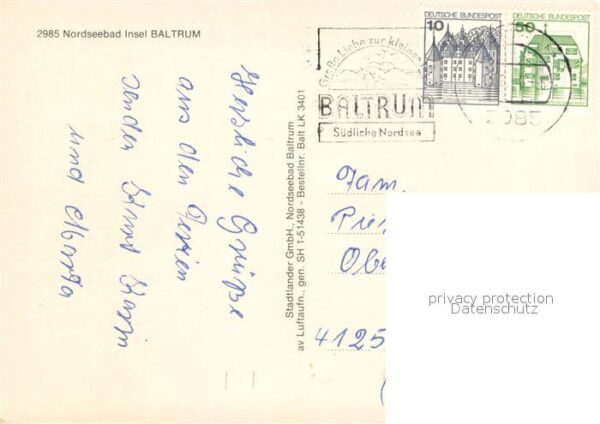 2985 Nordseebad Insel BALTRUM
Herzliche Grüße
aus den Ferien
senden Horst Karin
und Martha
Stadtlander GmbH., Nordseebad Baltrum
av Luftaufn., gen. SH 1-51438 - Bestellnr. Balt LK 3401
Große Liebe zur kleinen
BALTRUM
Südliche Nordsee
2985
DEUTSCHE BUNDESPOST
10
DEUTSCHE BUNDESPOST
50
Fam.
4125
privacy protection
Datenschutz